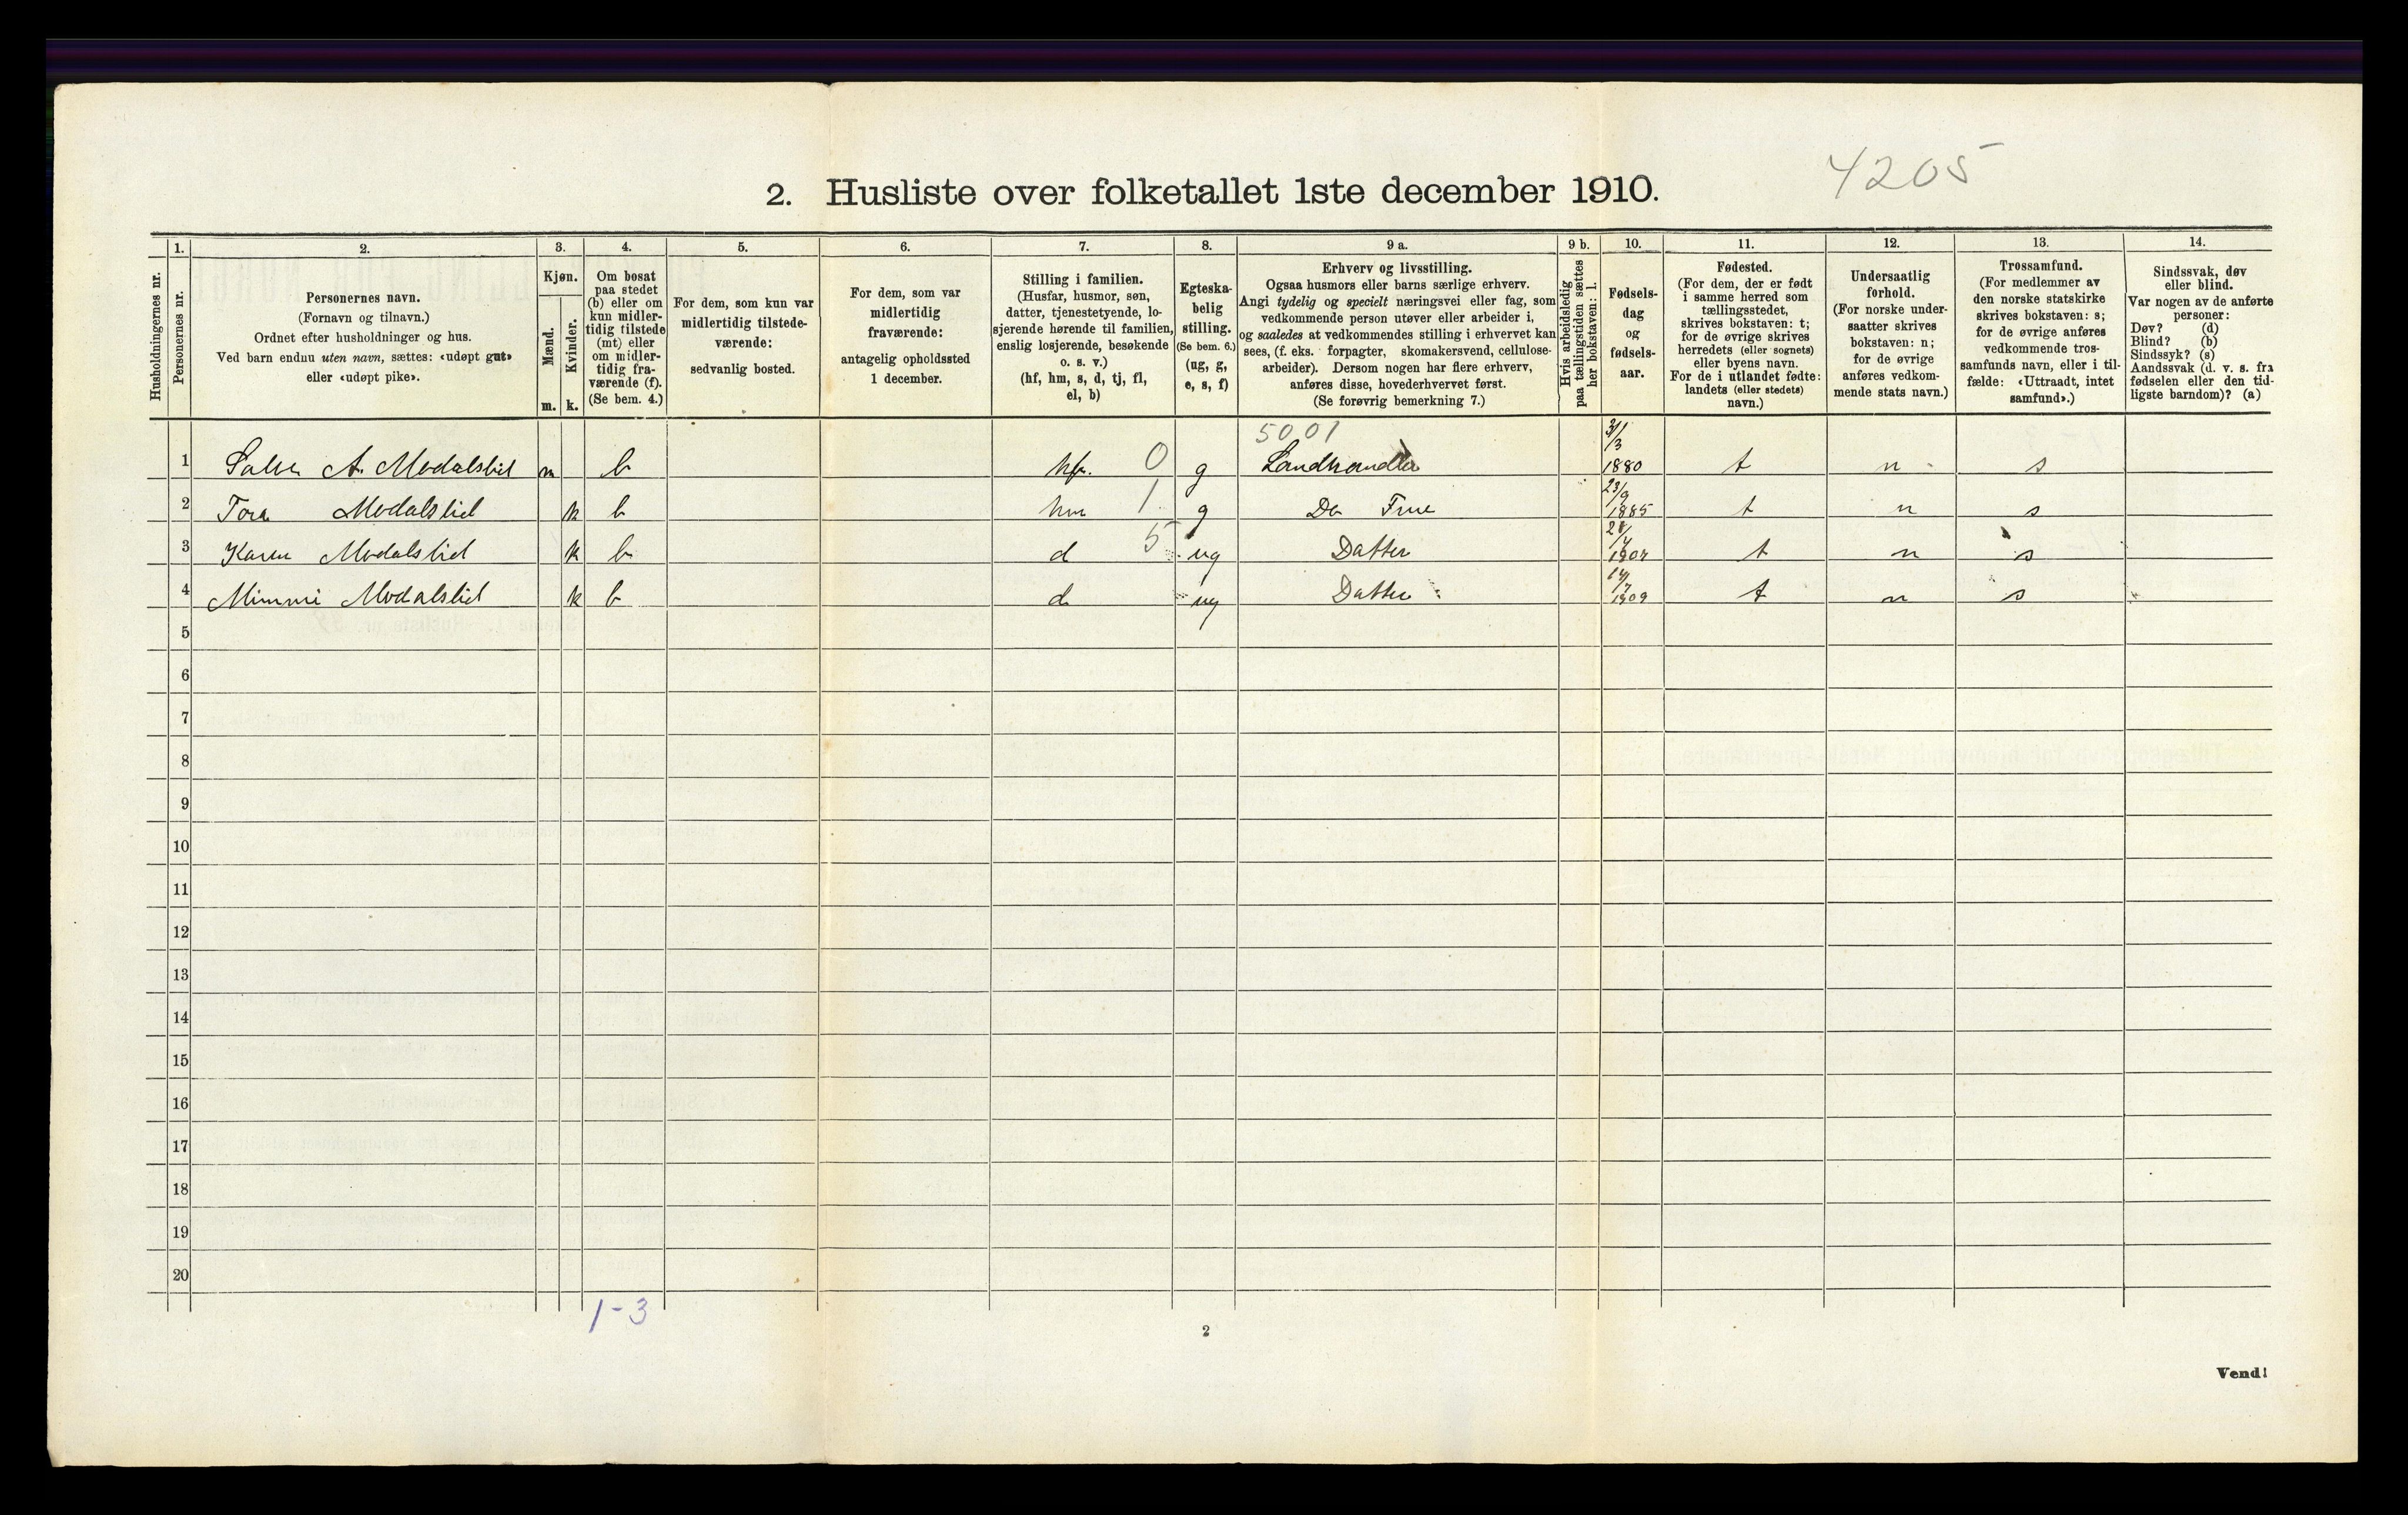 4205
2. Husliste over folketallet 1ste december 1910.
Husholdningernes nr.
1.
Personernes nr.
2.
Personernes navn.
(Fornavn og tilnavn.)
Ordnet efter husholdninger og hus.
Ved barn endnu uten navn, sættes: «udøpt gut»
eller «udøpt pike».
3.
Kjøn.
Mænd.
Kvinder.
m. k.
4.
Om bosat
paa stedet
(b) eller om
kun midler-
tidig tilstede
(mt) eller
om midler-
tidig fra-
værende (f).
(Se bem. 4.)
5.
For dem, som kun var
midlertidig tilstede-
værende:
sedvanlig bosted.
6.
For dem, som var
midlertidig
fraværende:
antagelig opholdssted
1 december.
7.
Stilling i familien.
(Husfar, husmor, søn,
datter, tjenestetyende, lo-
sjerende hørende til familien,
enslig losjerende, besøkende
o. s. v.)
(hf, hm, s, d, tj, fl,
el, b)
8.
Egteska-
belig
stilling.
(Se bem. 6.)
(ug, g,
e, s, f)
9 a.
Erhverv og livsstilling.
Ogsaa husmors eller barns særlige erhverv.
Angi tydelig og specielt næringsvei eller fag, som
vedkommende person utøver eller arbeider i,
og saaledes at vedkommendes stilling i erhvervet kan
sees, (f. eks. forpagter, skomakersvend, cellulose-
arbeider). Dersom nogen har flere erhverv,
anføres disse, hovederhvervet først.
(Se forøvrig bemerkning 7.)
9 b.
Hvis arbeidsledig
paa tællingstiden sættes
her bokstaven: l.
10.
Fødsels-
dag
og
fødsels-
aar.
11.
Fødested.
(For dem, der er født
i samme herred som
tællingsstedet,
skrives bokstaven: t;
for de øvrige skrives
herredets (eller sognets)
eller byens navn.
For de i utlandet fødte:
landets (eller stedets)
navn.)
12.
Undersaatlig
forhold.
(For norske under-
saatter skrives
bokstaven: n;
for de øvrige
anføres vedkom-
mende stats navn.)
13.
Trossamfund.
(For medlemmer av
den norske statskirke
skrives bokstaven: s;
for de øvrige anføres
vedkommende tros-
samfunds navn, eller i til-
fælde: «Uttraadt, intet
samfund».)
14.
Sindssvak, døv
eller blind.
Var nogen av de anførte
personer:
Døv? (d)
Blind? (b)
Sindssyk? (s)
Aandssvak (d. v. s. fra
fødselen eller den tid-
ligste barndom)? (a)
5001
1 A. Modalslid m b hf. 0 g Landhandler 31/3 1880 t n s
2 Tora Modalslid k b hm 1 g De Frue 23/9 1885 t n s
3 Karen Modalslid k b d 5 ug Datter t n s
4 Mimmi Modalslid k b d ug Datter 1909 t n s
5
6
7
8
9
10
11
12
13
14
15
16
17
18
19
20
1-3
2
Vend!